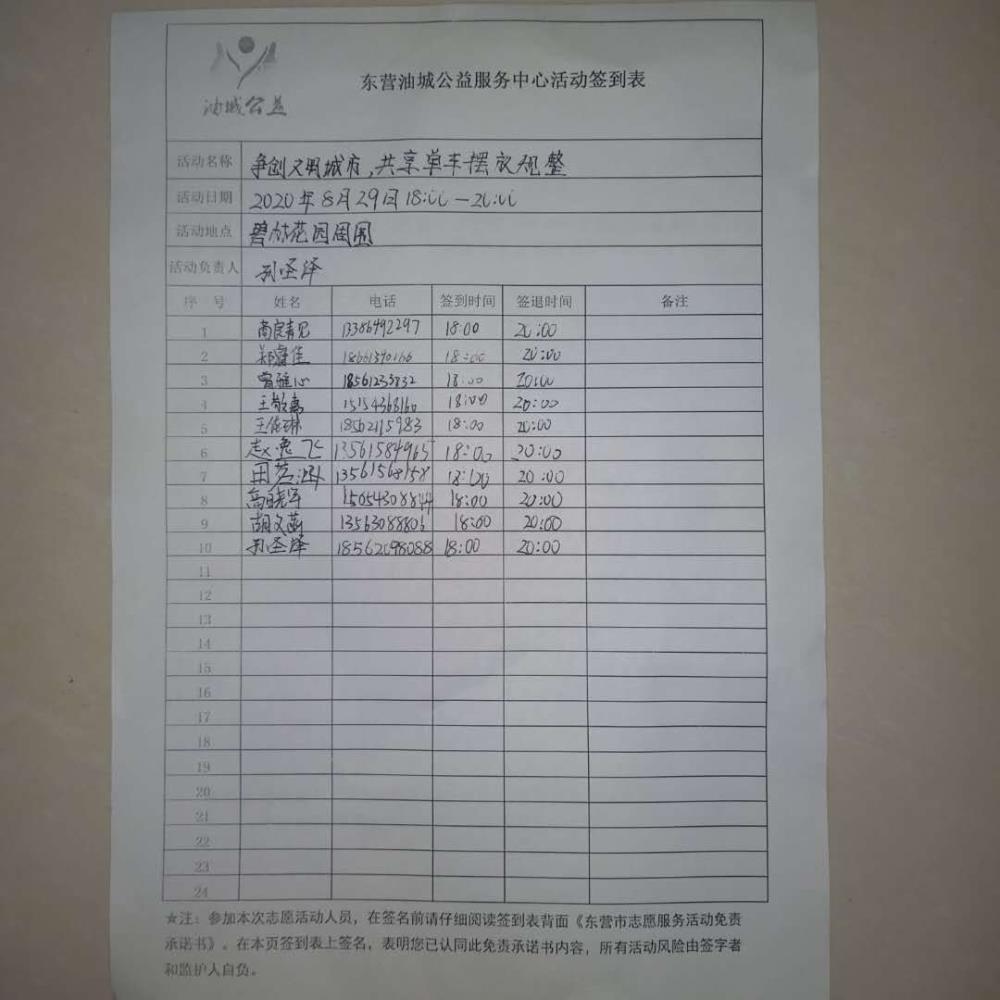 油城公益
东营油城公益服务中心活动签到表
活动名称 争创文明城市,共享单车摆放规整
活动日期 2020年8月29日18:00-20:00
活动地点 碧林花园周围
活动负责人 孙圣泽
序号 姓名 电话 签到时间 签退时间 备注
1 18:00 20:00
2 18:00 20:00
3 18561233832 18:00 20:00
4 15154368160 18:00 20:00
5 王依琳 18562115983 18:00 20:00
6 赵逸飞 13561584965 18:00 20:00
7 13561568158 18:00 20:00
8 高晓军 15054308844 18:00 20:00
9 胡文菡 13563088806 18:00 20:00
10 孙圣泽 18562098088 18:00 20:00
11
12
13
14
15
16
17
18
19
20
21
22
23
24
★注:参加本次志愿活动人员,在签名前请仔细阅读签到表背面《东营市志愿服务活动免责
承诺书》。在本页签到表上签名,表明您已认同此免责承诺书内容,所有活动风险由签字者
和监护人自负。